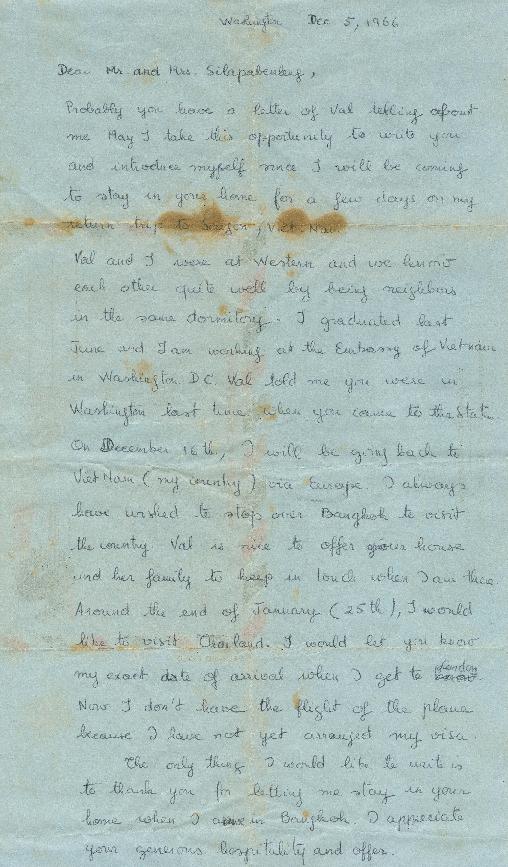 Washington Dec 5, 1966
Dear Mr. and Mrs. Silapabanleng,
Probably you have a letter of Val telling about
me May I take this opportunity to write you
and introduce myself since I will be coming
to stay in your home for a few days on my
return trip to Saigon, Viet Nam
Val and I were at Western and we know
each other quite well by being neighbors
in the same dormitory. I graduated last
June and I am working at the Embassy of Vietnam
in Washington D.C. Val told me you were in
Washington last time when you came to the State
On December 16th, I will be going back to
Viet Nam (my country) via Europe. I always
have wished to stop over Bangkok to visit
the country Val is nice to offer your house
and her family to keep in touch when I am there.
Around the end of January (25th), I would
like to visit Thailand. I would let you know
my exact date of arrival when I get to London
Now I don't have the flight of the plane
because I have not yet arranged my visa.
The only thing I would like to write is
to thank you for letting me stay in your
home when I am in Bangkok. I appreciate
your generous hospitality and offer.